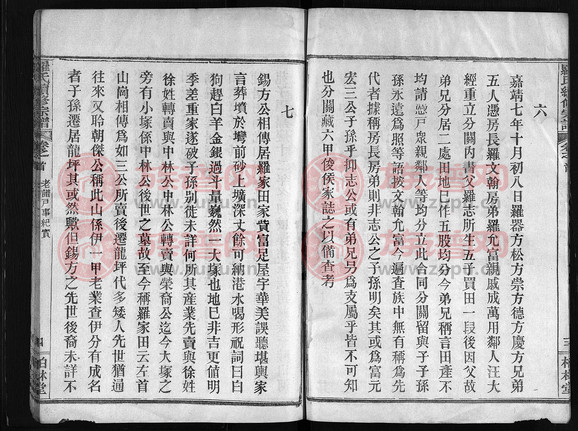 六
嘉靖七年十月初八日羅器方松方崇方德方慶方兄弟
五人憑房長羅文翰房弟羅允富親戚咸萬用鄰人汪大
經重立分關內書父羅志所生五子買田一段後因父故
弟兄分居二處田地已作五股均分今弟兄稱言田產不
均請憑戶眾親鄰人等均分立此一同分關留與子子孫
孫永遠為照等語按文翰允富今遍查族中無有稱為先
代者據房長房弟則非志公之子孫明矣其或為富元
宏三公子孫乎抑志公或有弟兄另為支屬乎皆不可知
也分關藏六甲後侯家誌之以備查考
七
錫方公相傳居羅家田家貲富足屋宇華美誤聽堪輿家
言葬墳於壪前砂上壙深丈餘可納港水喝形祝詞曰白
狗趕白羊金銀過斗量巍然一大塚也地已非吉更值明
季差重家遂破子孫剝徙未詳何所其產業先賣與徐姓
徐姓轉賣與中林公中林公轉賣與榮裔公迄今大塚之
旁有小塚徐中林公後世之墓故至今稱羅家田云左首
山尚相傳為如三公所賣後遷龍坪代多矮人先世猶過
往來又聆朝傑公稱此山係伊一甲老業查伊分有成名
者子孫遷居龍坪其或然歟但錫方之先世後裔未詳不
羅氏續修宗譜
卷首
老龍戶事紀實
四
柏林堂
三
柏林堂